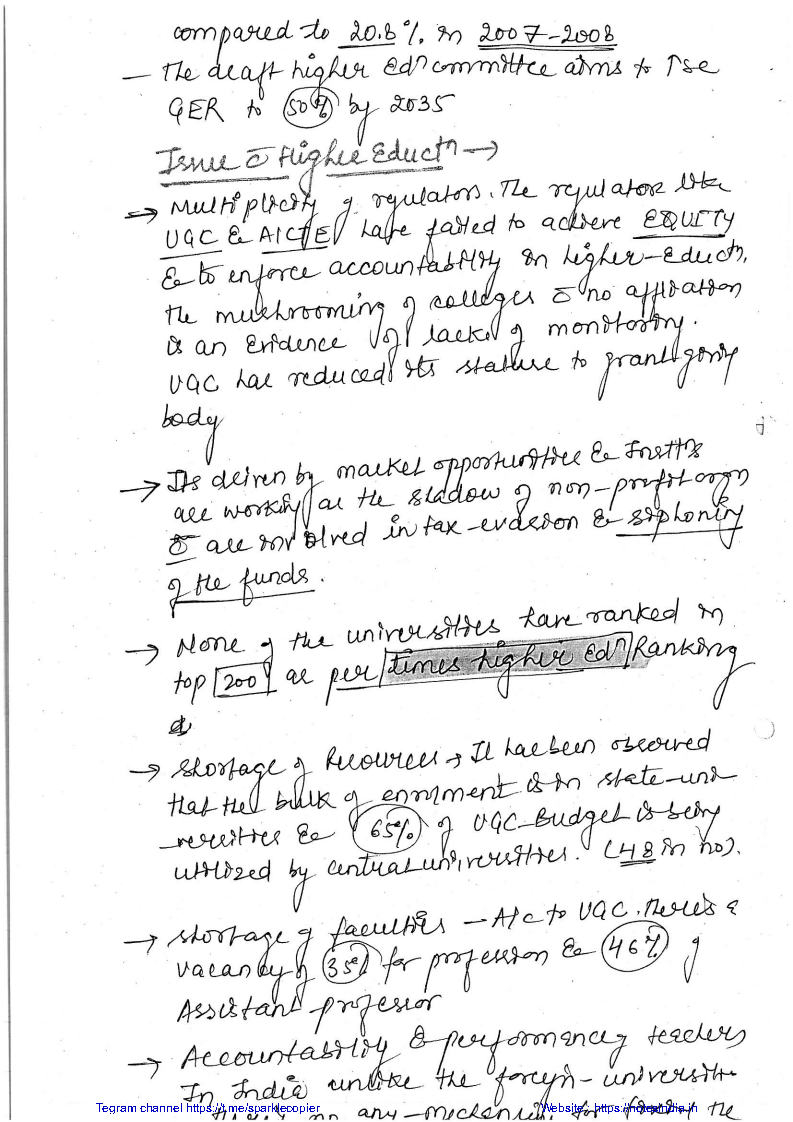 compared to 20.8%. in 2007-2008
— The draft higher Edn committee aims to ↑se
GER to 50% by 2035
Issue c̄ Higher Eductn →
→ Multiplicity of regulators. The regulator like
UGC & AICTE have failed to achieve EQUITY
& to enforce accountability in higher-Eductn.
the mushrooming of colleges c̄ no affiliation
is an Evidence of lack of monitoring.
UGC has reduced its stature to grant giving
body
→ Its driven by market opportunities & Instt's
are working as the shadow of non-profit orgn
c̄ are involved in tax-evasion & siphoning
of the funds.
→ None of the universities have ranked in
top 200 as per times higher Edn Ranking
→ Shortage of Resources → It has been observed
that the bulk of enrolment is in state-uni
-versities & 65% of UGC-Budget is being
utilized by central universities. (48 in no).
→ Shortage of faculties — A/c to UGC. There's a
vacancy of 35% for profession & 46% of
Assistant professor
→ Accountability & performance of teachers
In India unlike the foreign-universiti
no any-mechanism for the
Tegram channel https://t.me/sparklecopier
Website:- https://notesindia.in